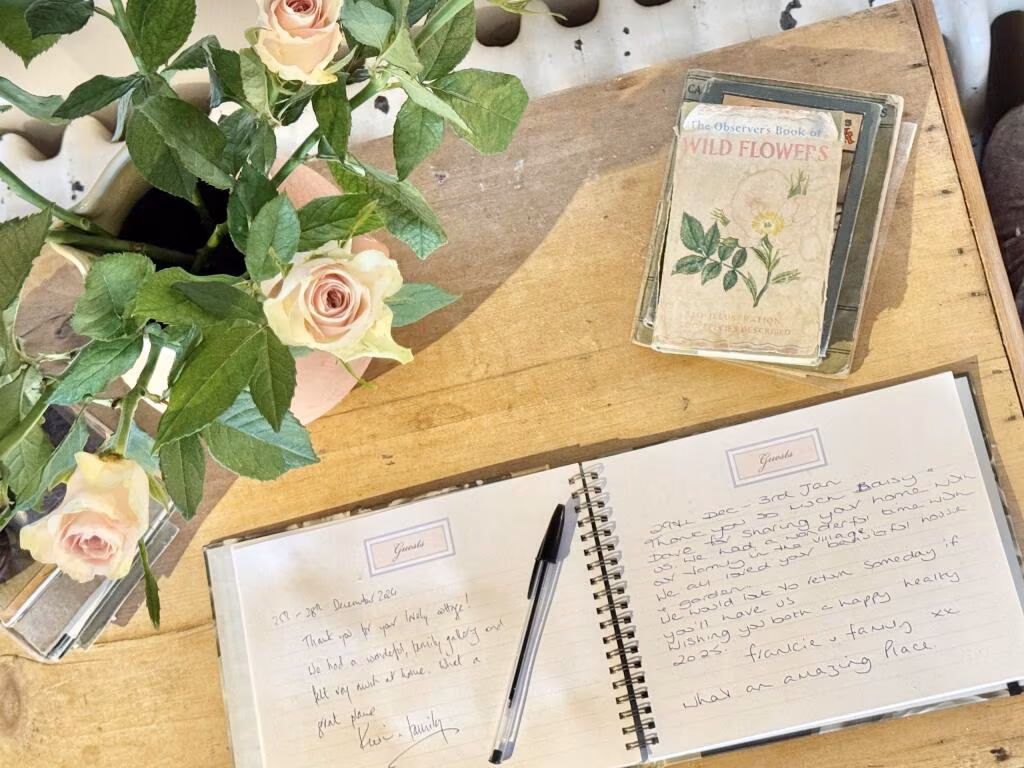 CA
S
The Observer's Book of
WILD FLOWERS
ILLUSTRATION
DESCRIBED
Guests
28th December 2024
Thank you for your lovely cottage!
We had a wonderful, family gallery and
felt very much at home. What a
great place
& family
Guests
29th Dec - 3rd Jan
Thank you so much Daisy &
Dave for sharing your home with
us. We had a wonderful time with
our family in the village.
We all loved your beautiful house
& garden.
We would love to return someday if
you'll have us
Wishing you both a happy healthy
2025. francie & family xx
what an amazing place.